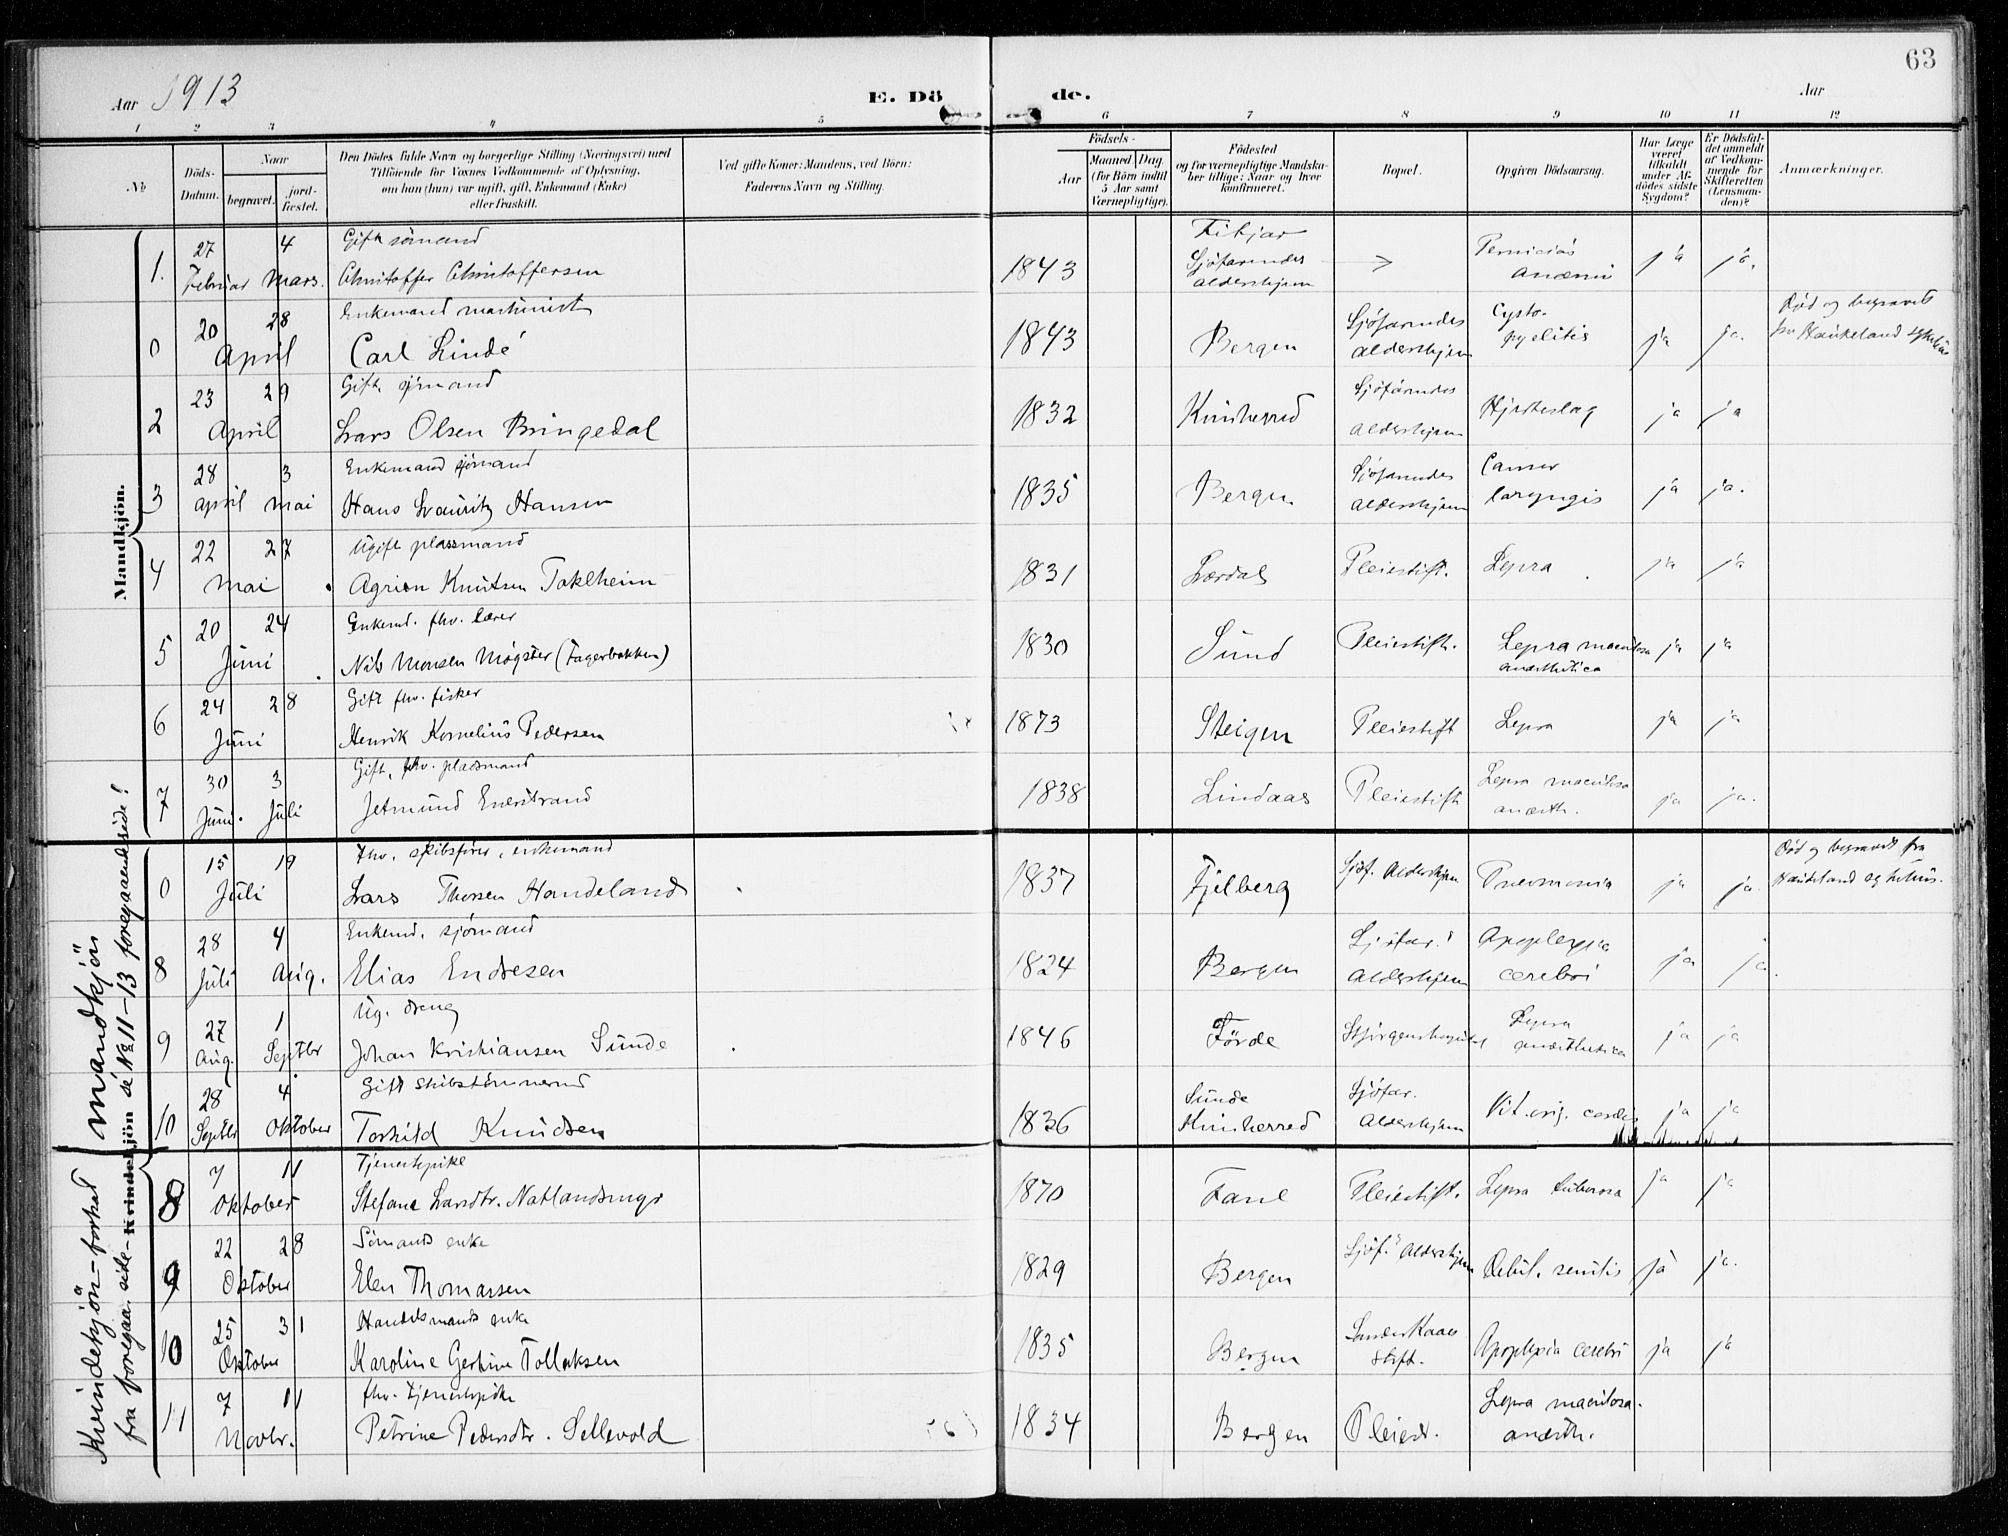 63
Aar 1913
E. Döde.
Aar
1 2 3 4 5 6 7 8 9 10 11 12
No
Döds-Datum.
Naar
begravet.
jord-fæstet.
Den Dödes fulde Navn og borgerlige Stilling (Næringsvei) med
Tilföiende for Voxnes Vedkommende af Oplysning,
om han (hun) var ugift, gift, Enkemand (Enke)
eller fraskilt.
Ved gifte Koner: Mandens, ved Börn:
Faderens Navn og Stilling.
Födsels-
Aar
Maaned Dag
(for Börn indtil
5 Aar samt
Værnepligtige).
Födested
og for værnepligtige Mandska-
ber tillige: Naar og hvor
konfirmeret.
Bopæl.
Opgiven Dödsaarsag.
Har Læge
været
tilkaldt
under Af-
dödes sidste
Sygdom?
Er Dödsfal-
det anmeldt
af Vedkom-
mende for
Skifteretten
(Lensman-
den)?
Anmærkninger.
Mandkjön.
1. 27 Februar 4 Mars. Gift sömand
Christoffer Christoffersen 1843 Fitjar Sjöfarendes aldershjem Perniciös anæmi ja ja.
0 20 28 April Enkemand maskinist
Carl Lindé 1843 Bergen Sjöfarendes aldershjem Cysto-pyelitis ja ja. Död og begravet fra Haukeland sykehus
2 23 29 April Gift sjömand
Lars Olsen Bringedal 1832 Kvinherred Sjöfarendes aldershjem Hjerteslag ja ja
3 28 april 3 mai Enkemand sjömand
Hans Lauritz Hansen 1835 Bergen Sjöfarendes aldershjem Cancer laryngis ja ja.
4 22 27 mai Ugift plassmand
Agrien Knutsen Toklheim 1831 Lærdal Pleiestift. Lepra ja ja
5 20 24 Juni Enkemd. fhv. lærer
Nils Monsen Møgster (Fagerbakken) 1830 Sund Pleiestift. Lepra maculosa anæsthetica ja ja
6 24 28 Juni Gift fhv. fisker
Henrik Kornelius Pedersen 1873 Steigen Pleiestift Lepra ja ja
7 30 Juni. 3 Juli Gift, fhv. pladsmand
Jetmund Enerstrand 1838 Lindaas Pleiestift Lepra maculosa anæsth. ja ja.
mandkjön
Kvindekjön de No 11-13 foregaaendeside!
0 15 19 Juli Fhv. skibsfører, enkemand
Lars Thorsen Handeland 1837 Fjelberg Sjöf. Aldershjem Pneumonia ja ja. Död og begravet fra Haukeland sykehus.
8 28 Juli 4 Aug. Enkemd. sjømand
Elias Endresen 1824 Bergen Sjöfar. Aldershjem Apoplexia cerebri ja ja.
9 27 Aug. 1 Septbr Ug. dreng
Johan Kristiansen Sunde 1846 Förde St Jörgenshospital Lepra anæsthetica ja ja
10 28 Septbr 4 Oktober Gift skibstömmermd
Torkild Knudsen 1836 Sunde Kvinherred Sjöfar. Aldershjem Vit. org. cordis ja ja
Kvindekjön-fortsat
fra foregaa. side-
8 7 11 Oktober Tjenestepike
Stefane Larsdtr. Natlandsmyr 1870 Fane Pleiestift. Lepra tuberosa ja ja
9 22 28 Oktober Sömands enke
Elen Thomassen 1829 Bergen Sjöf.s Alderhjem Debil. senilis ja ja.
10 25 31 Oktober Handelsmands enke
Karoline Gertine Tollaksen 1835 Bergen Sander Kaaes Stift. Apoplexia cerebri ja ja
11 7 11 Novbr. fhv. Tjenestepike
Petrine Pedersdtr. Sellevold 1834 Bergen Pleiest. Lepra maculosa. anæsth.